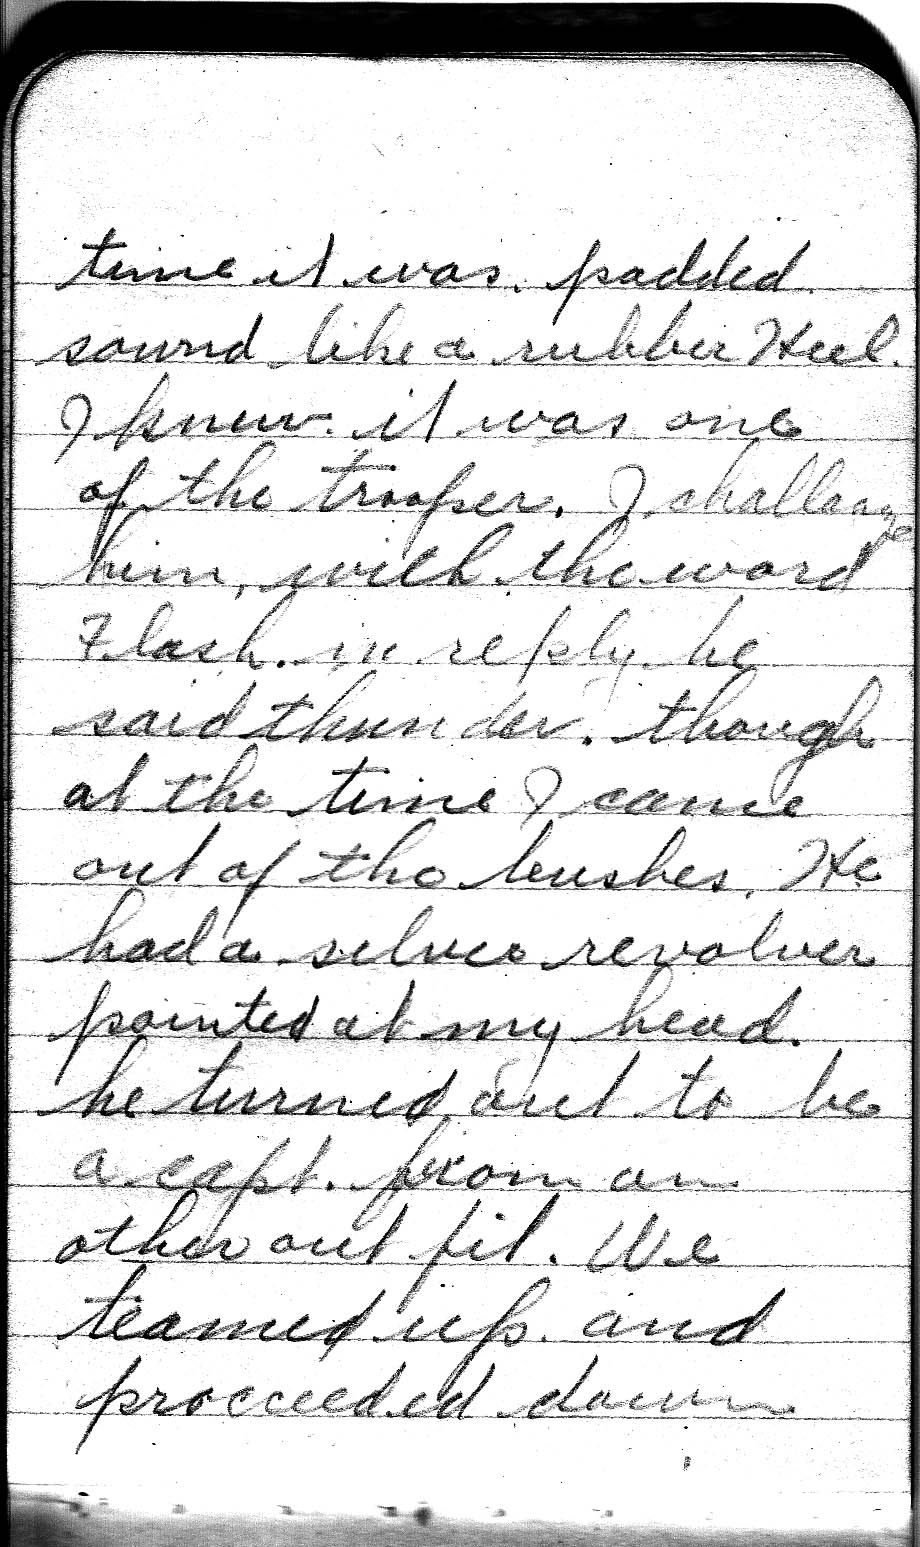 time it was. padded
sound like a rubber Heel.
I knew. it was one
of the trooper. I challange
him, with the word
Flash. in reply he
said thunder. though
at the time I came
out of the bushes. He
had a silver revolver
pointed at my head.
he turned out to be
a capt. from an
other out fit. We
teamed up. and
procceeded down